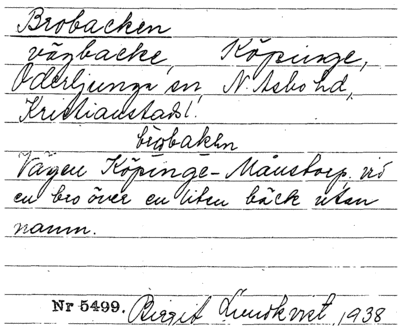 Brobacken
vägbacke, Köpinge,
Oderljunga sn, N. Asbo hd,
Kristianstads l.
brobaken
Vägen Köpinge-Månstorp vid
en bro över en liten bäck utan
namn.
Nr 5499. Birgit Lundkvist, 1938